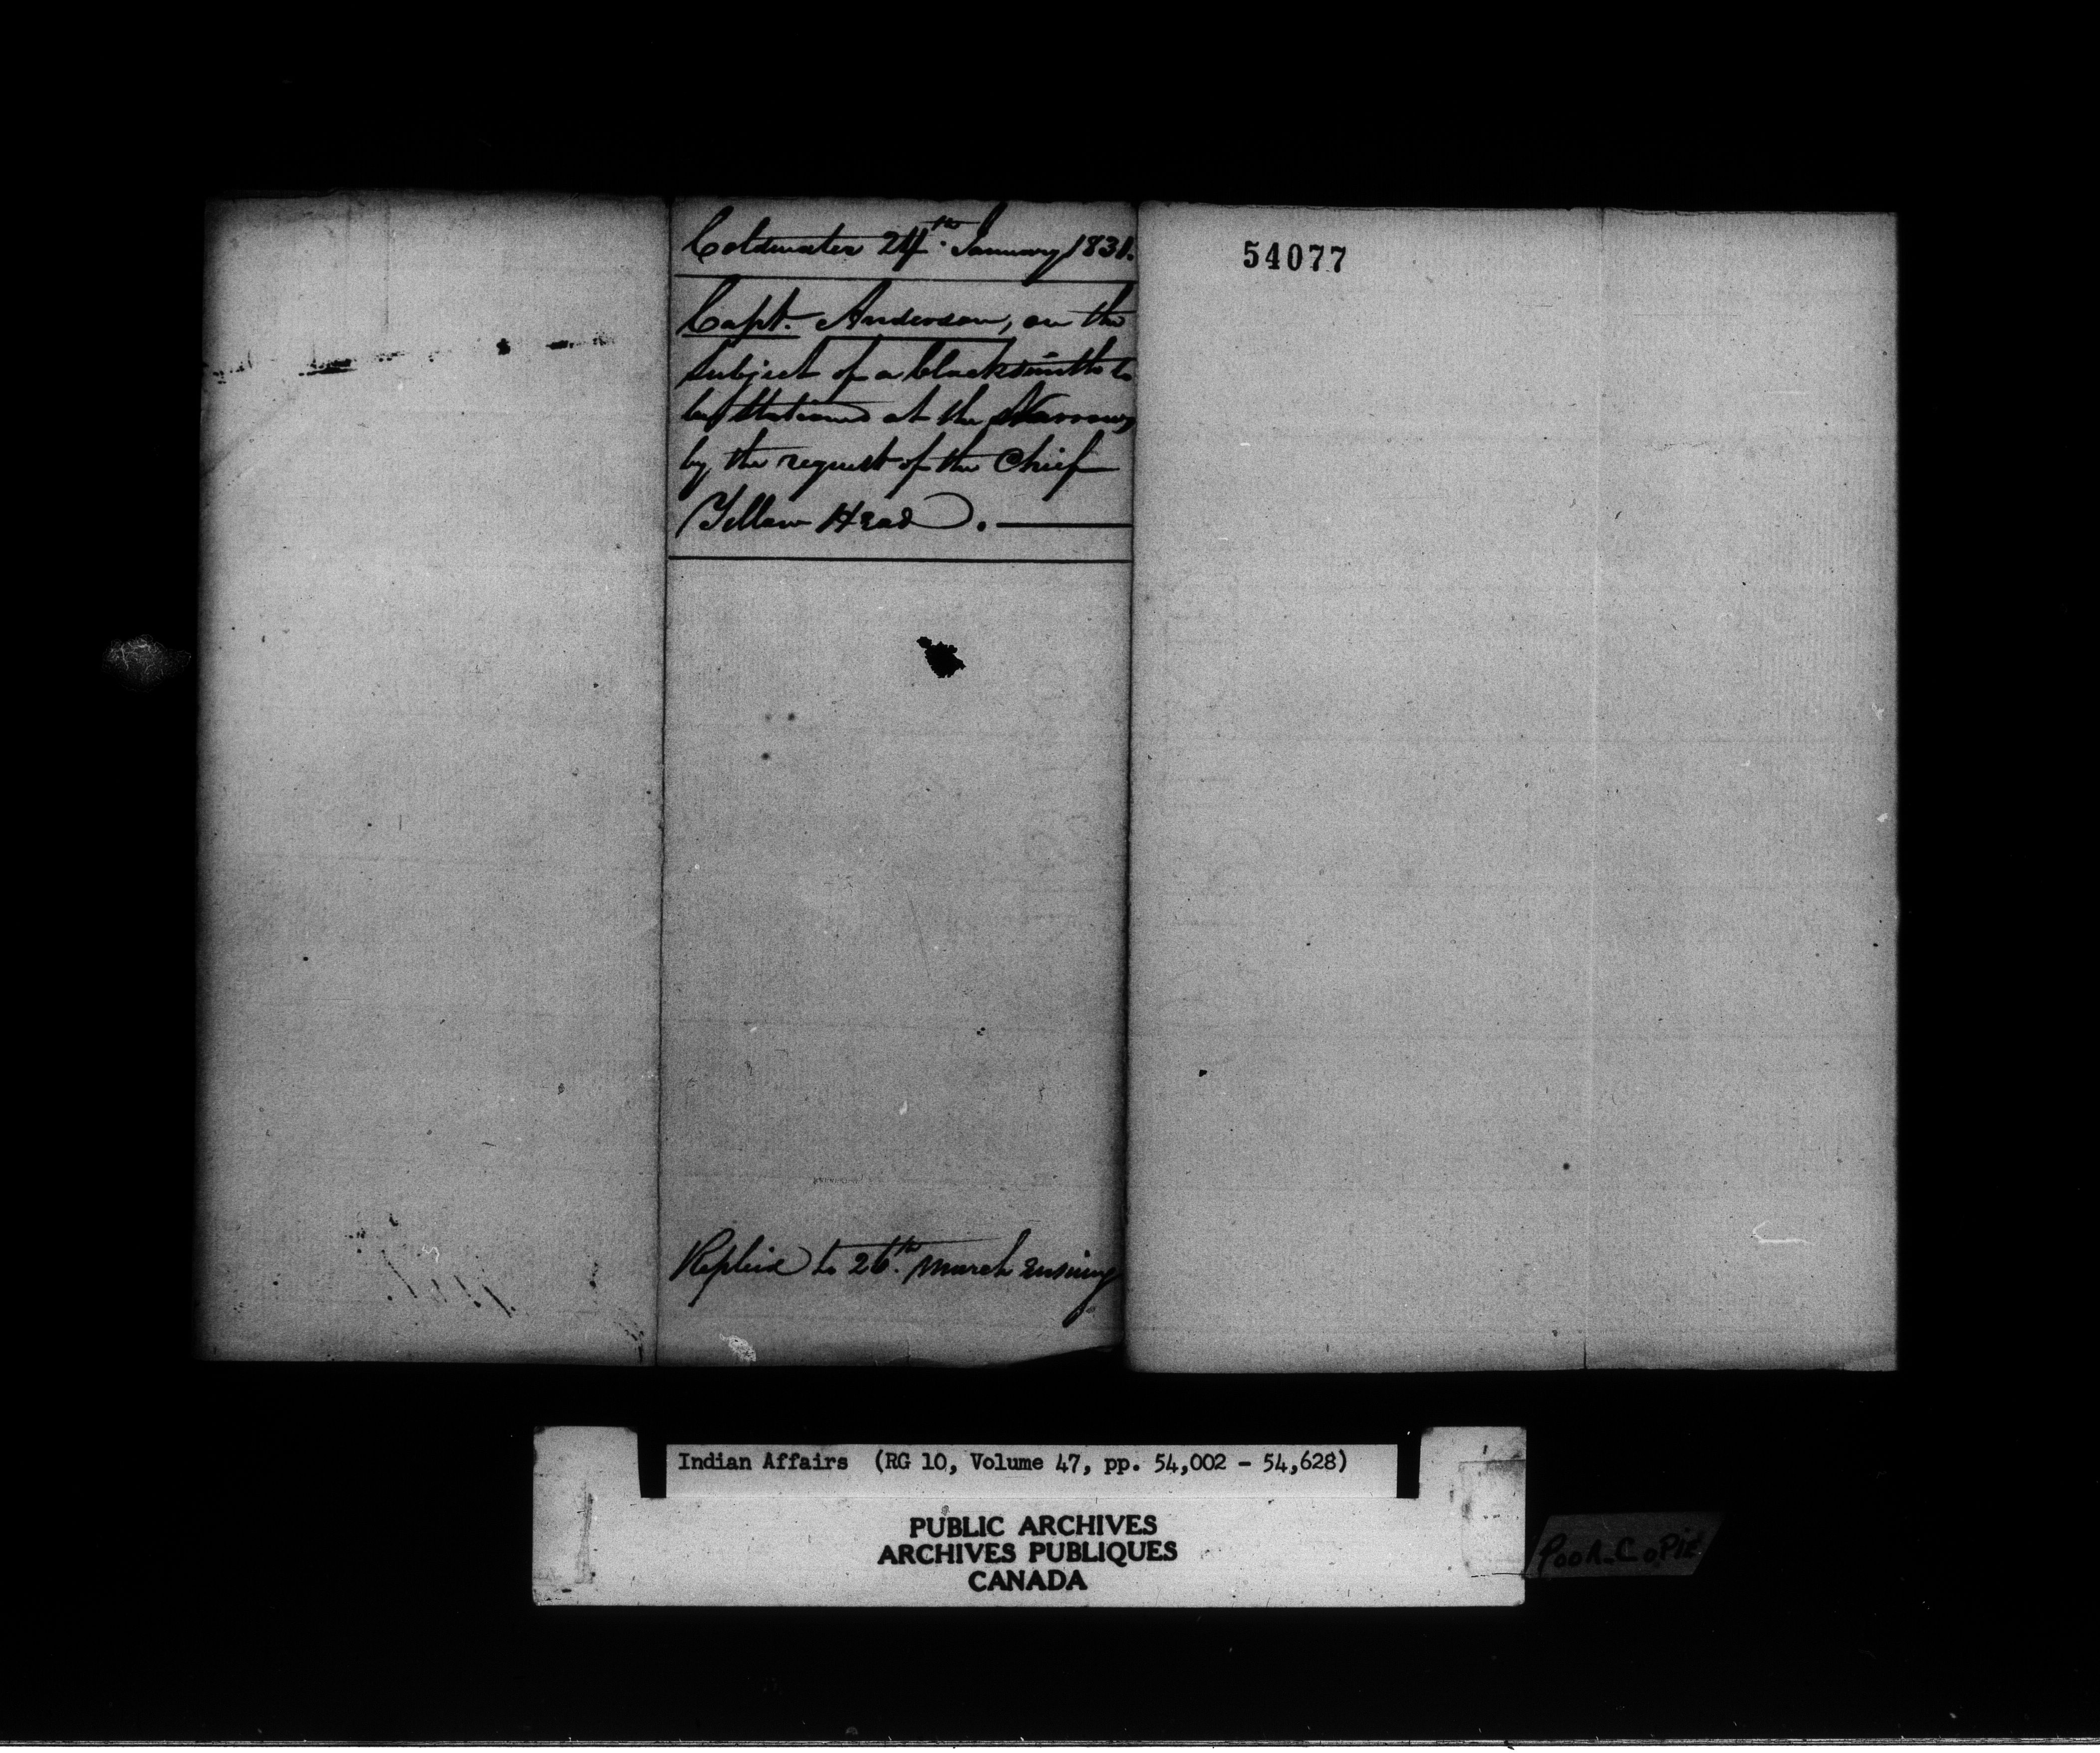 Coldwater 24th January 1831.
Capt. Anderson, on the
subject of a blacksmith to
be stationed at the Narrows
by the request of the Chief
Yellow Head.
Replied to 26th March ensuing
54077
Indian Affairs (RG 10, Volume 47, pp. 54,002 - 54,628)
PUBLIC ARCHIVES
ARCHIVES PUBLIQUES
CANADA
POOR COPIE